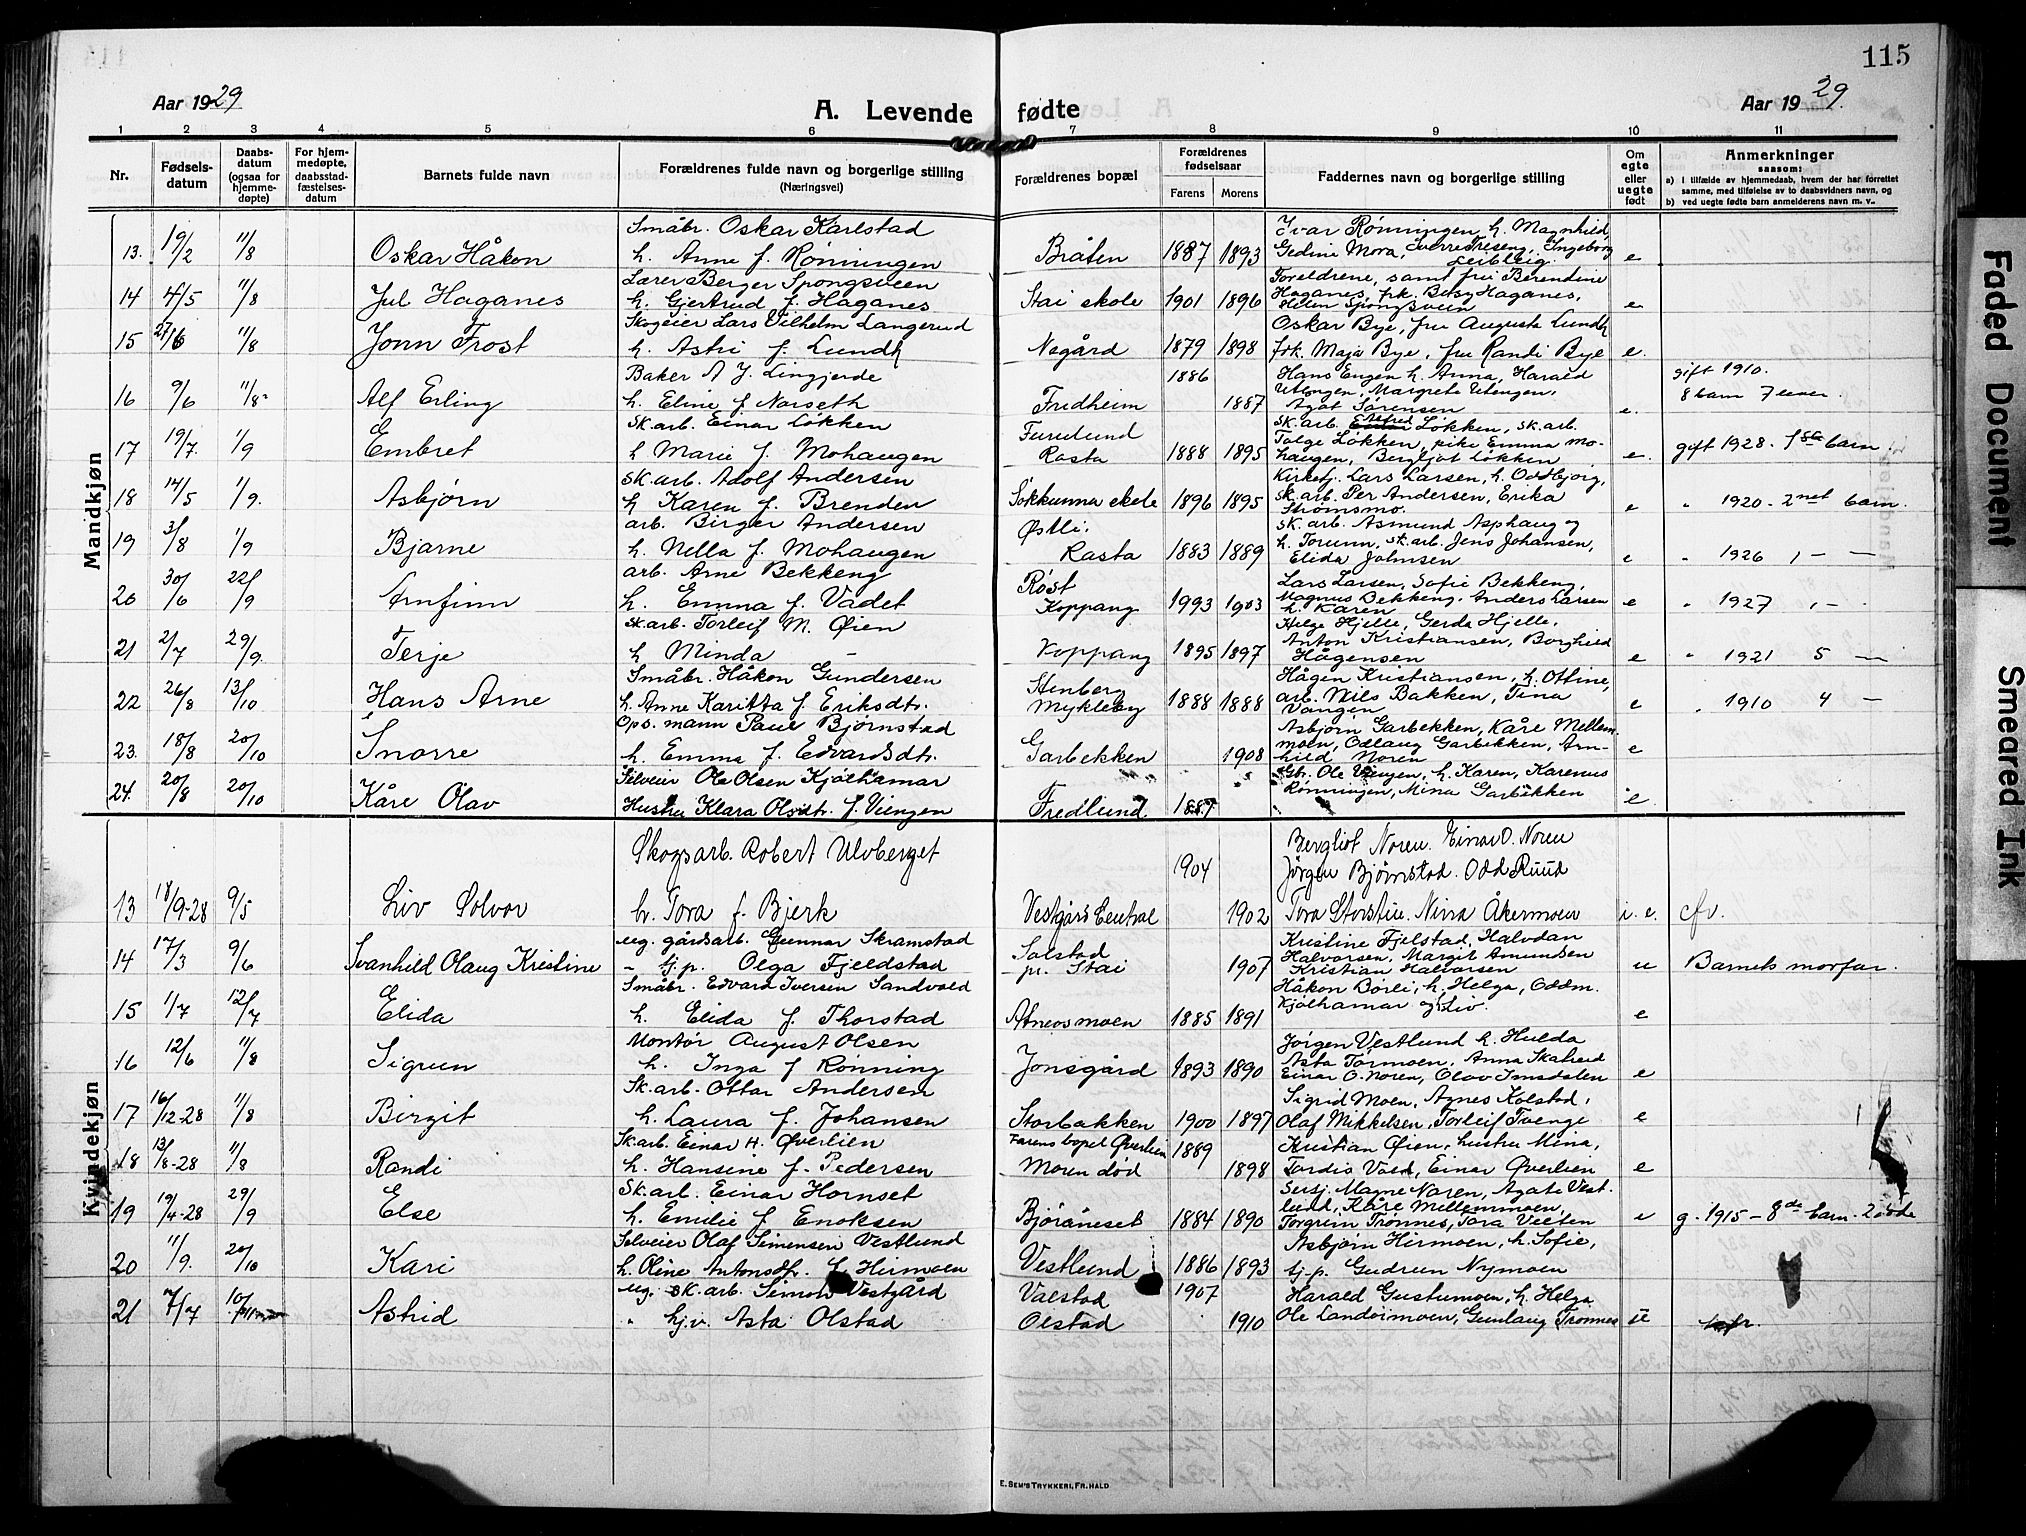 115
Aar 1929
A. Levende fødte
Aar 1929.
1 2 3 4 5 6 7 8 9 10 11
Nr.
Fødselsdatum
Daabsdatum (ogsaa for hjemmedøpte)
For hjemmedøpte, daabsstadfæstelsesdatum
Barnets fulde navn
Forældrenes fulde navn og borgerlige stilling
(Næringsvei)
Forældrenes bopæl
Forældrenes fødselsaar
Farens Morens
Faddernes navn og borgerlige stilling
Om egte eller uegte født
Anmerkninger
saasom:
a) I tilfælde av hjemmedaab, hvem der har forrettet samme, med tilføielse av to daabsvidners navn, og
b) ved uegte fødte barn anmelderens navn m. v.
Mandkjøn
Småbr. Oskar Karlstad
Ivar Rønningen, h. Magnhild,
13. 19/2 11/8 Oskar Håkon h. Anne f. Rønningen Bråten 1887 1893 Gedine Mora, Sverre Treseng, Ingeborg e
Lærer Berger Spongsveen
Foreldrene, samt fru Berendine
14 4/5 11/8 Jul Haganes h. Gjertrud f. Haganes Stai skole 1901 1896 Haganes, frk. Betsy Haganes, Helen Spongsveen e
Skogeier Lars Vilhelm Langerud
Oskar Bye, fru Augusta Lundh
15 27/6 11/8 Jonn Frost h. Astri f. Lundh Negård 1879 1898 frk. Maja Bye, fru Randi Bye e.
Baker A J. Lingjerde 1886 Hans Engen h. Anna, Harald gift 1910.
16 9/6 11/8 Alf Erling h. Eline f. Norseth Fredheim 1887 Utengen, Margrete Utengen, Agot Sørensen e. 8 barn 7 lever.
Sk.arb. Einar Løkken Furulund sk.arb. Alfred Løkken, sk.arb.
17 19/7. 1/9 Embret h Marie f. Mohaugen Rasta 1888 1895 Tolge Løkken, pike Emma Mohaugen, Bergljot Løkken e. gift 1928. 1ste barn.
sk.arb. Adolf Andersen
Kirkefj. Lars Larsen, h. Oddbjørg,
18 14/5 1/9. Asbjørn h Karen f. Brenden Søkkunna skole 1896 1895 sk.arb. Per Andersen, Erika Strømsmo. e " 1920 - 2net barn.
arb. Birger Andersen Østli. sk.arb. Asmund Asphaug og
19 3/8 1/9 Bjarne h. Nella f. Mohaugen Rasta 1883 1889 h. Torunn, sk.arb. Jens Johansen, Elida Johnsen e " 1926 1 — —
arb. Arne Bekkeng Røst Lars Larsen, Sofie Bekkeng,
20 30/6 22/9 Arnfinn h. Emma f. Vadet Koppang 1993 1903 Magnus Bekkeng, Anders Larsen h. Karen e " 1927 1 — .
sk.arb. Torleif M. Øien Helge Hjelle, Gerda Hjelle,
21 2/7 29/9. Terje h Minda — Koppang 1895 1897 Anton Kristiansen, Borghild Hågensen e " 1921 5 —
Småbr. Håkon Gundersen Stenberg Hågen Kristiansen, h. Ottine,
22 26/8 13/10 Hans Arne h. Anne Karitta f. Eriksdtr. Mykleby 1888 1888 arb. Nils Bakken, Tina Vangen e " 1910 4 —
Ops. mann Paul Bjørnstad Asbjørn Garbekken, Kåre Mellemmoen,
23. 18/8 20/10 Snorre h. Emma f. Edvardsdtr. Garbekken 1908 Odlaug Garbekken, Arnhild Noren e
Selveier Ole Olsen Kjølhamar Gb. Ole Viengen, h. Karen, Karenus
24. 20/8 20/10 Kåre Olav Hustru Klara Olsdtr. f. Viengen Fredlund 1887 Rønningen, Mina Garbekken e.
Kvindekjøn
Skogsarb. Robert Ulvberget 1904 Bergliot Noren. Einar O. Noren
Jørgen Bjørnstad. Odd Ruud
13 18/9-28 9/5 Liv Solvor h. Tora f. Bjerk Vestgård Central 1902 Tora Storstue. Nina Åkermoen i. e. cfv.
ug. gårdsarb. Gunnar Skramstad Solstad Kristine Fjelstad, Halvdan
14 17/3 9/6 Svanhild Olaug Kristine – tj.p. Olga Fjeldstad pr. Stai 1907 Halvorsen, Margit Amundsen Kristian Halvorsen u Barnets morfar.
Småbr. Edvard Iversen Sandvold Håkon Børli, h. Helga, Oddm.
15 1/7 12/7 Elida h. Elida f. Thorstad Atneosmoen 1885 1891 Kjølhamar og Liv. e
Montør August Olsen Jørgen Vestlund h. Hulda
16 12/6 11/8 Sigrun h. Inga f Rønning Jonsgård 1893 1890 Asta Tørmoen, Anna Skalreid Einar O. Noren, Olav Imsdalen e
Sk.arb. Ottar Andersen Sigrid Moen, Agnes Kolstad,
17 16/12-28 11/8 Birgit h. Laura f. Johansen Storbakken 1900 1897 Olaf Mikkelsen, Torleif Tvenge e
Sk.arb. Einar H. Øverlien Farens bopel Øverlien 1889 Kristian Øien, hustru Mina,
18 13/8-28 11/8 Randi h. Hansine f. Pedersen Moren død 1898 Tordis Vold, Einar Øverlien e
Sk.arb. Einar Hornset Sersj. Magne Noren, Agate Vestlund, Kåre Mellemmoen,
19 19/4-28 29/9 Else h. Emilie f Enoksen Bjøråneset 1884 1890 Torgrim Trønnes, Tora Vieten e g. 1915 – 8de barn. 2 døde
Selveier Olaf Simensen Vestlund Asbjørn Hirmoen, h. Sofie,
20 11/9. 20/10 Kari h. Oline Antonsdtr. f Hirmoen Vestlund 1886 1893 tj.p. Gudrun Nymoen
ug. sk.arb. Simon Vestgård Valstad 1907 Harald Gustumoen, h. Helga
21 7/7 10/11 Astrid " hj.v. Asta Olstad Olstad 1910 Ole Landsimoen, Gunlaug Trønnes u
E. SEM'S TRYKKERI, FR. HALD
Faded Document
Smeared Ink